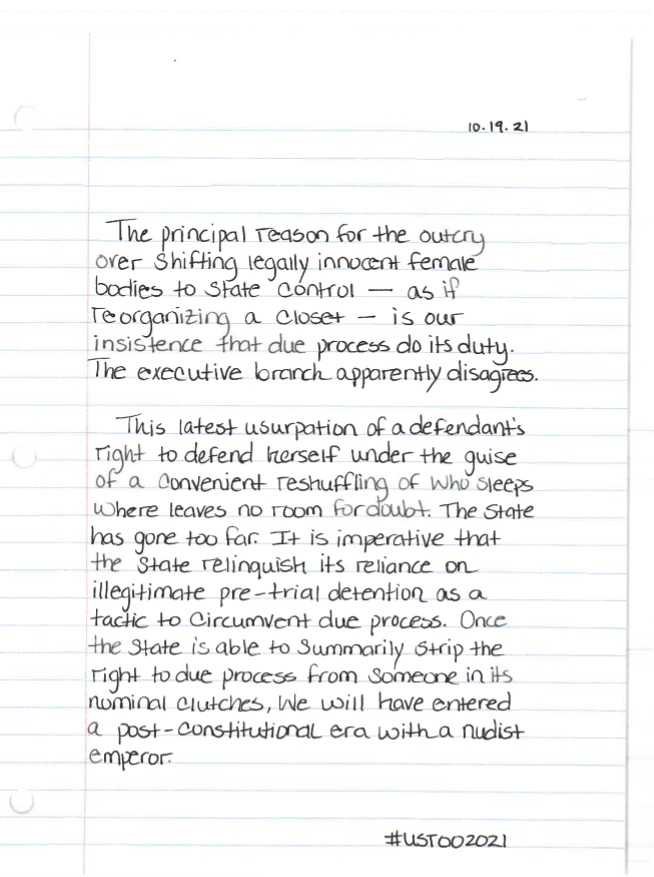 10.19.21
The principal reason for the outcry
over shifting legally innocent female
bodies to State control — as if
reorganizing a closet — is our
insistence that due process do its duty.
The executive branch apparently disagrees.
This latest usurpation of a defendant's
right to defend herself under the guise
of a convenient reshuffling of who sleeps
where leaves no room for doubt. The State
has gone too far. It is imperative that
the State relinquish its reliance on
illegitimate pre-trial detention as a
tactic to circumvent due process. Once
the State is able to summarily strip the
right to due process from someone in its
nominal clutches, we will have entered
a post-constitutional era with a nudist
emperor.
#USTOO2021